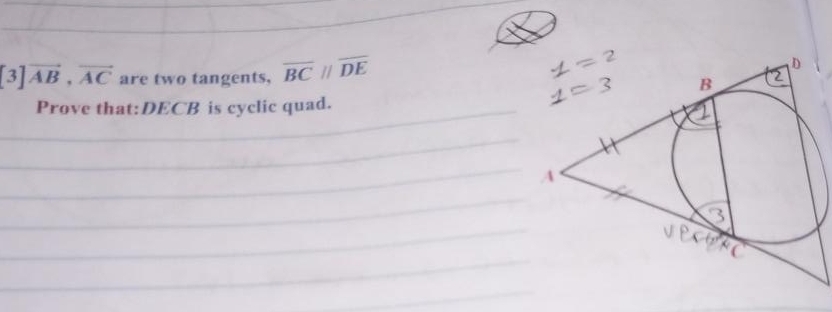 [3] AB , AC are two tangents, BC // DE
Prove that: DECB is cyclic quad.
1 = 2
1 = 3
D
2
B
1
A
3
C